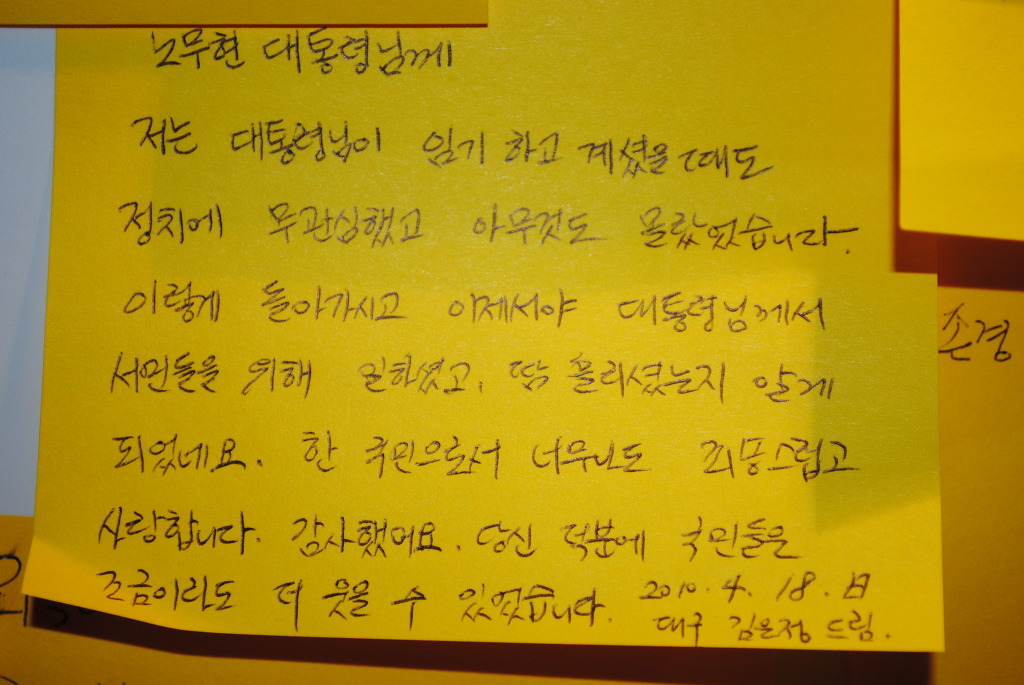 노무현 대통령님께
저는 대통령님이 임기 하고 계셨을 때도
정치에 무관심했고 아무것도 몰랐었습니다.
이렇게 돌아가시고 이제서야 대통령님께서
서민들을 위해 일하셨고, 땀 흘리셨는지 알게
되었네요. 한 국민으로서 너무나도 죄송스럽고
사랑합니다. 감사했어요. 당신 덕분에 국민들은
조금이라도 더 웃을 수 있었습니다.
2010. 4. 18. 日
대구 김은정 드림.
존경